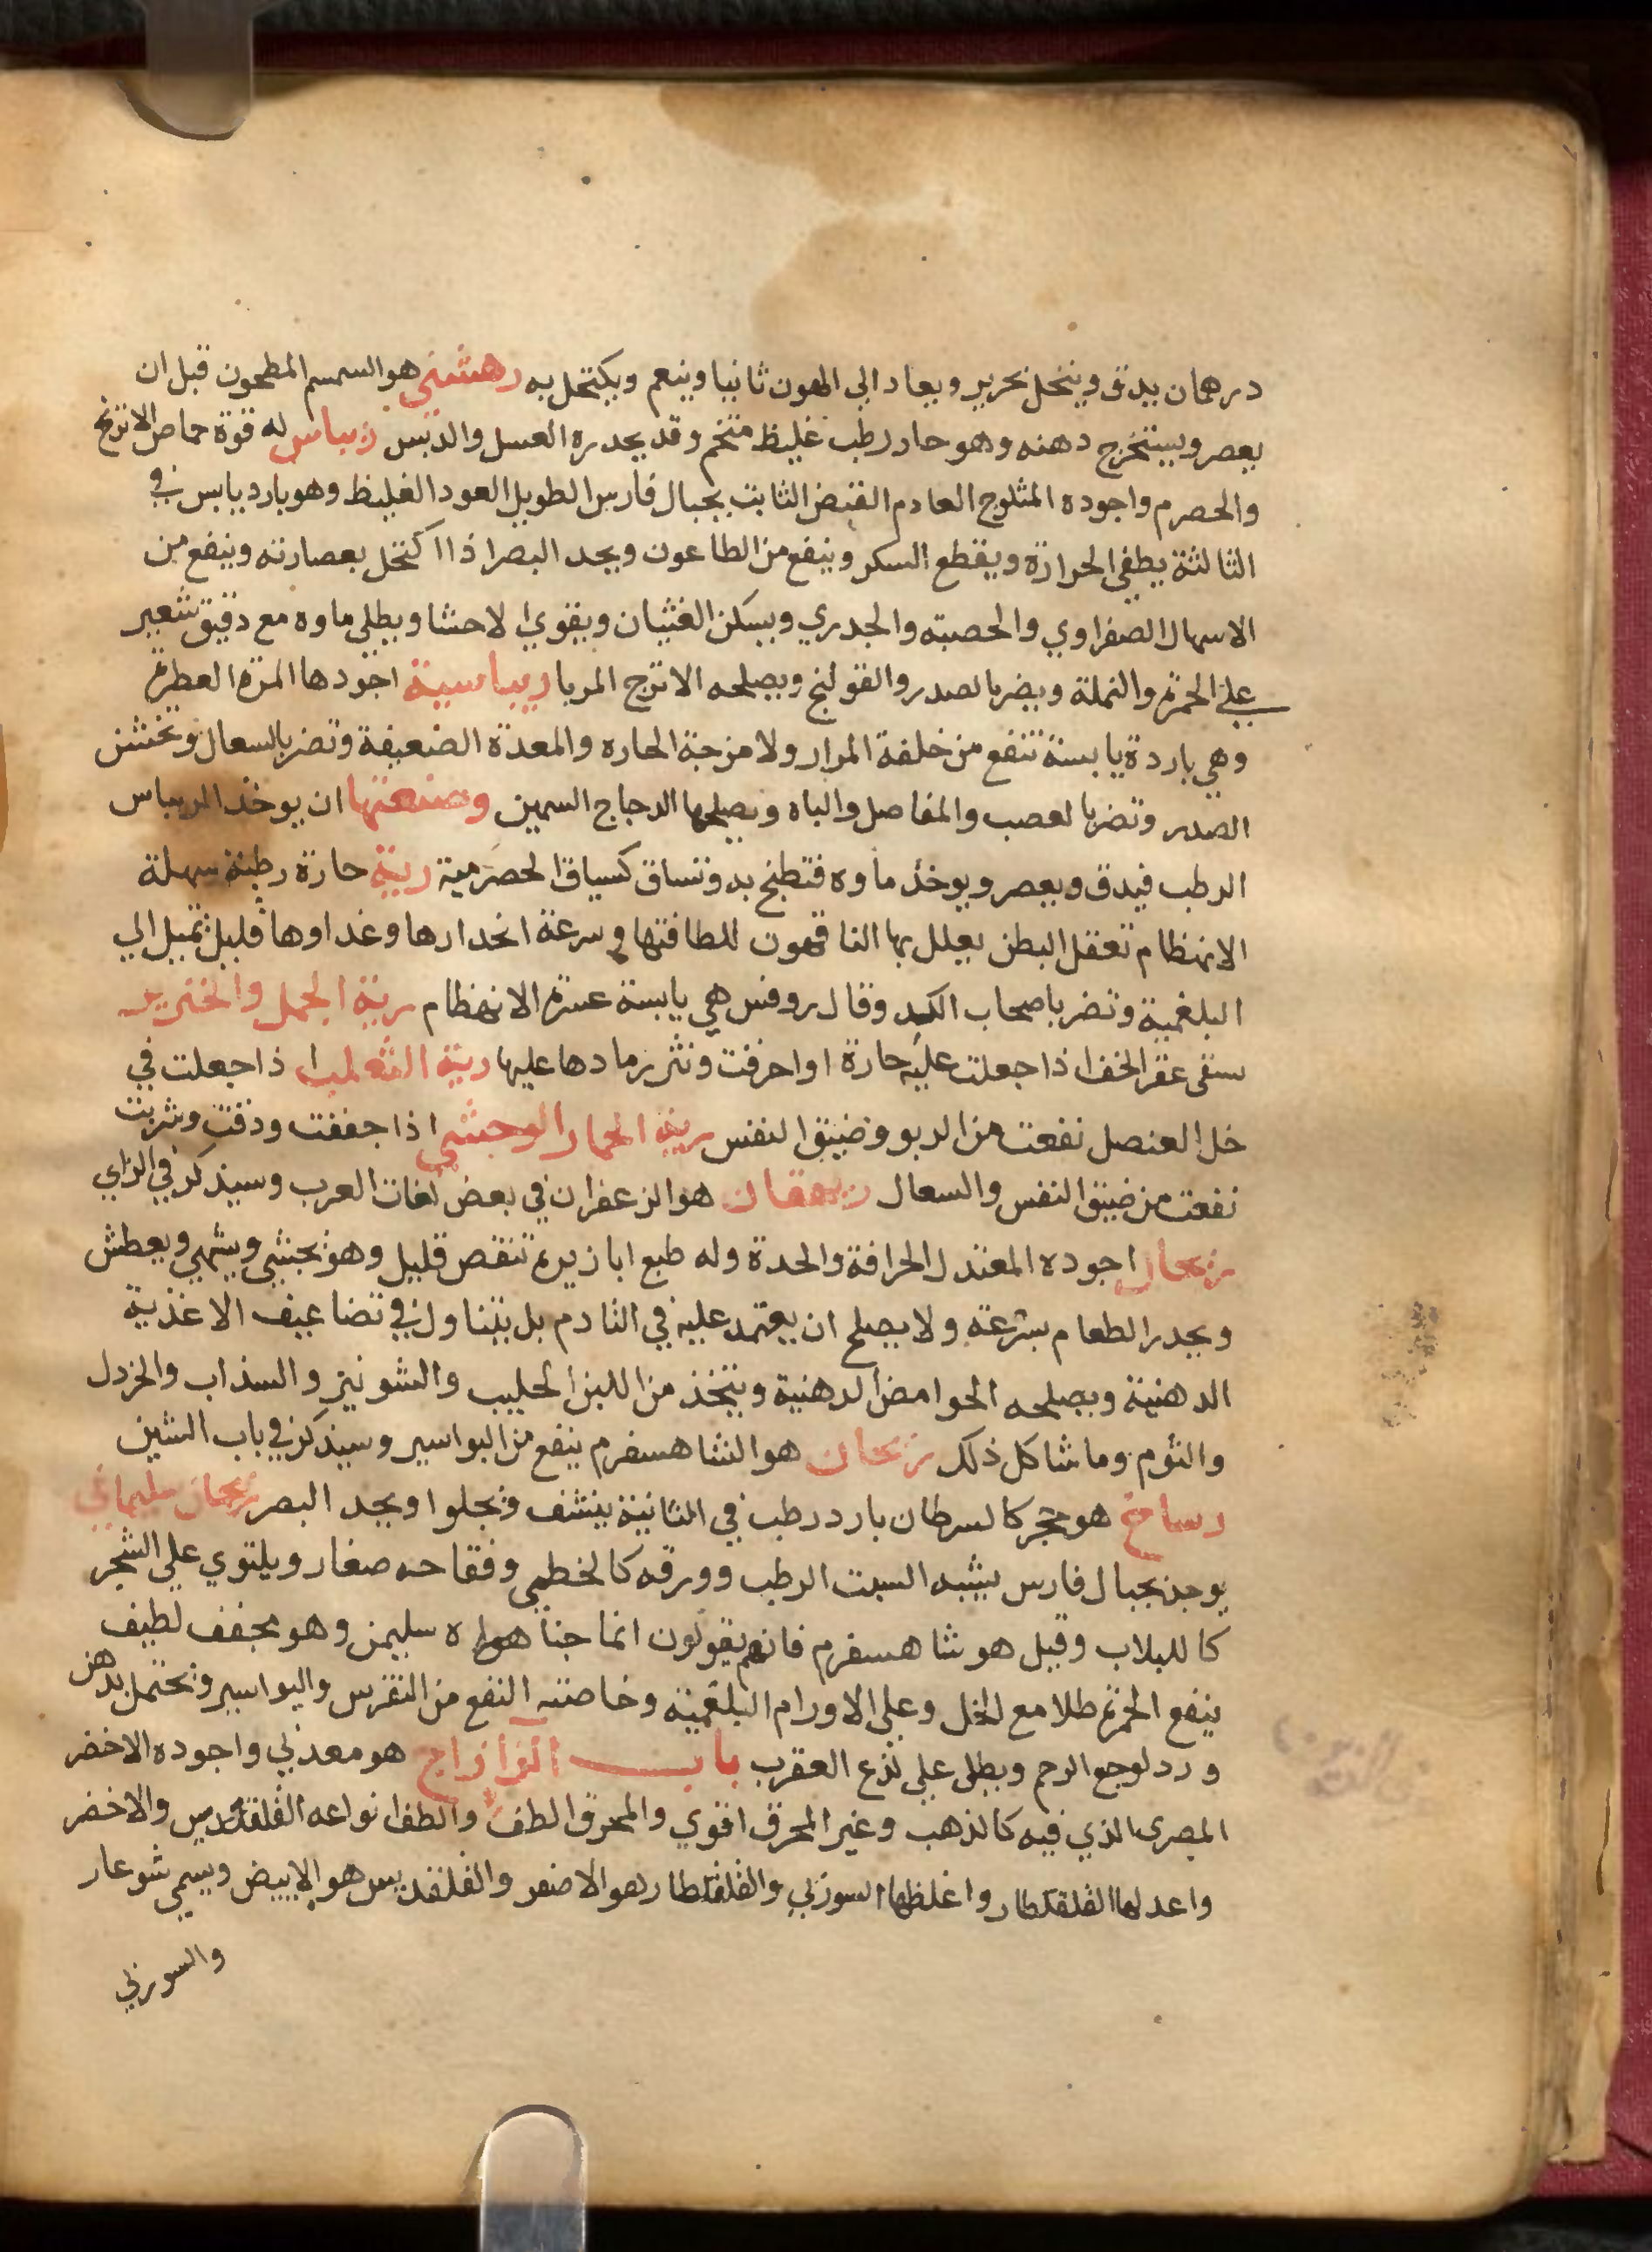 درهمان يدق وينخل بحرير ويعاد الي الهون ثانيا وينعم ويكتحل به رهشي هو السمسم المطحون قبل ان
يعصر ويستخرج دهنه وهو حار رطب غليظ متخم وقد يحدره العسل والدبس ريباس له قوة حماض الاترج
والحصرم واجوده المثلوج العادم القبض الثابت بجبال فارس الطويل العود الغليظ وهو بارد يابس في
الثالثة يطفي الحرارة ويقطع السكر وينفع من الطاعون ويحد البصر اذا اكتحل بعصارته وينفع من
الاسهال الصفراوي والحصبه والجدري ويسكن الغثيان ويقوي الاحشا ويطلي ماوه مع دقيق شعير
علي الحمرة والنملة ويضر بالصدر والقولنج ويصلحه الاترج المربا ريباسية اجودها المزة العطرة
وهي باردة يابسة تنفع من خلفة المرار ولامزجة الحاره والمعدة الضعيفة وتضر بالسعال وتخشن
الصدر وتضر بالعصب والمفاصل والباه ويصلحها الدجاج السمين وصنعتها ان يوخذ الريباس
الرطب فيدق ويعصر ويوخذ ماوه فتطبخ به وتساق كسياق الحصرمية رية حارة رطبة سهلة
الانهظام تعقل البطن يعلل بها الناقهون للطافتها وسرعة انحدارها وغداوها قليل تميل الي
البلغمية وتضر باصحاب الكد وقال روفس هي يابسة عسرة الانهظام رية الجمل والخنزير
سقي عقر الخف اذا جعلت عليه حارة او احرقت ونثر رمادها عليها رية الثعلب اذا جعلت في
خل العنصل نفعت من الربو وضيق النفس رية الحمار الوحشي اذا جففت ودقت وشربت
نفعت من ضيق النفس والسعال ريهقان هو الزعفران في بعض لغات العرب وسيذكر في الزاي
ريحار اجوده المعتدل الحرافة والحدة وله طبع ابازيره تنقص قليل وهو يجشي ويشهي ويعطش
ويحدر الطعام بسرعة ولا يصلح ان يعتمد عليه في التادم بل يتناول في تضاعيف الاغذية
الدهنية ويصلحه الحوامض الدهنية ويتخذ من اللبن الحليب والشونيز والسذاب والخردل
والثوم وما شاكل ذلك ريحان هو الشاهسفرم ينفع من البواسير وسيذكر في باب الشين
رسامخ هو حجر كالسرطان بارد رطب في الثانية ينشف ويجلوا ويحد البصر ريحان سليماني
يوجد بجبال فارس يشبه السبت الرطب وورقه كالخطمي وفقاحه صغار ويلتوي علي الشجر
كاللبلاب وقيل هو شاهسفرم فانهم يقولون انما جنا هواه سليمن وهو مجفف لطيف
ينفع الحمرة طلا مع الخل وعلي الاورام البلغمية وخاصته النفع من النقرس والبواسير وتحتمل بدهن
ورد لوجع الرحم ويطلي علي لذع العقرب باب الزا زاج هو معدني واجوده الاخضر
المصري الذي فيه كالذهب وغير المحرق اقوي والمحرق الطف والطف انواعه القلقديس والاخضر
واعدلها القلقطار واغلظها السوزي والقلقطار هو الاصفر والقلقديس هو الابيض ويسمي شوعار
والسوزي